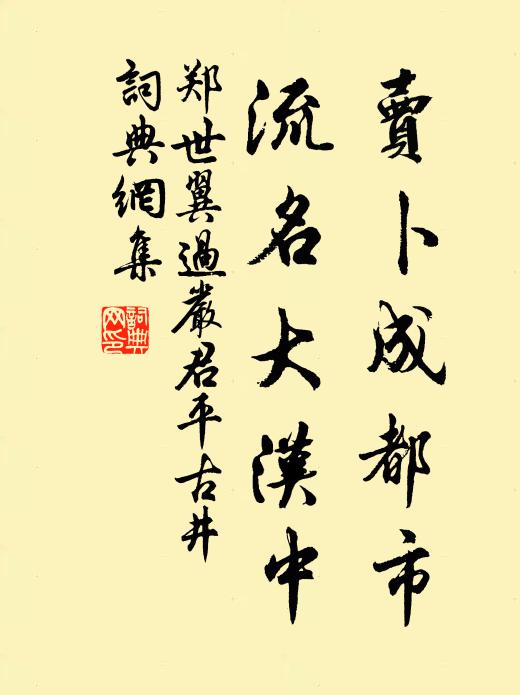 賣卜成都市
流名大漢中
郑世翼過嚴君平古井
詞典網集
詞典
网印